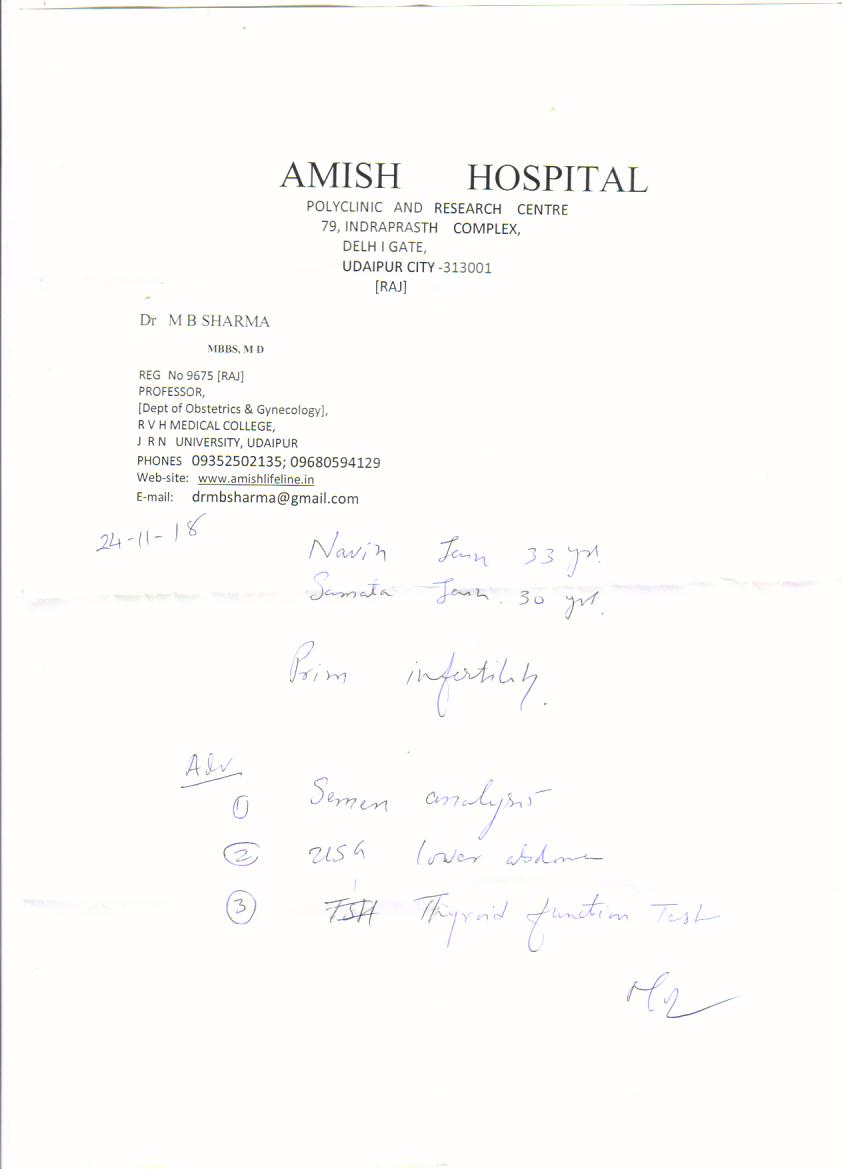 AMISH HOSPITAL
POLYCLINIC AND RESEARCH CENTRE
79, INDRAPRASTH COMPLEX,
DELH I GATE,
UDAIPUR CITY -313001
[RAJ]
Dr M B SHARMA
MBBS, M D
REG No 9675 [RAJ]
PROFESSOR,
[Dept of Obstetrics & Gynecology],
R V H MEDICAL COLLEGE,
J R N UNIVERSITY, UDAIPUR
PHONES 09352502135; 09680594129
Web-site: www.amishlifeline.in
E-mail: drmbsharma@gmail.com
24-11-18
Navin Jain 33 yrs.
Samata Jain. 30 yrs.
Prim infertility.
Adv
① Semen analysis
② USG lower abdomen
③ Thyroid function Test